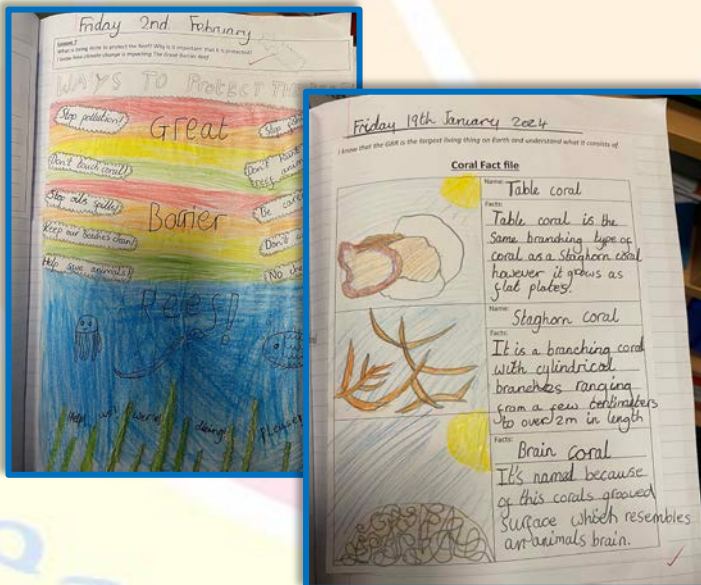 Friday 2nd February
Lesson 7
What is being done to protect the Reef? Why is it important that it is protected?
I know how climate change is impacting The Great Barrier Reef
WAYS TO PROTECT THE
Stop pollution!
Great
Stop
Don't touch coral!
Don't hunt
reef
Stop oils spills!
Barrier
Be
Keep our beaches clean!
Don't
Help save animals!
No
Reef!
Help! we're dieing! please!
Friday 19th January 2024
I know that the GBR is the largest living thing on Earth and understand what it consists of
Coral Fact file
Name: Table coral
Facts:
Table coral is the
same branching type of
coral as a staghorn coral
however it grows as
flat plates.
Name: Staghorn coral
Facts:
It is a branching coral
with cylindrical
branches ranging
from a few centimeters
to over 2m in length
Facts:
Brain Coral
It's named because
of this corals grooved
surface which resembles
an animals brain.